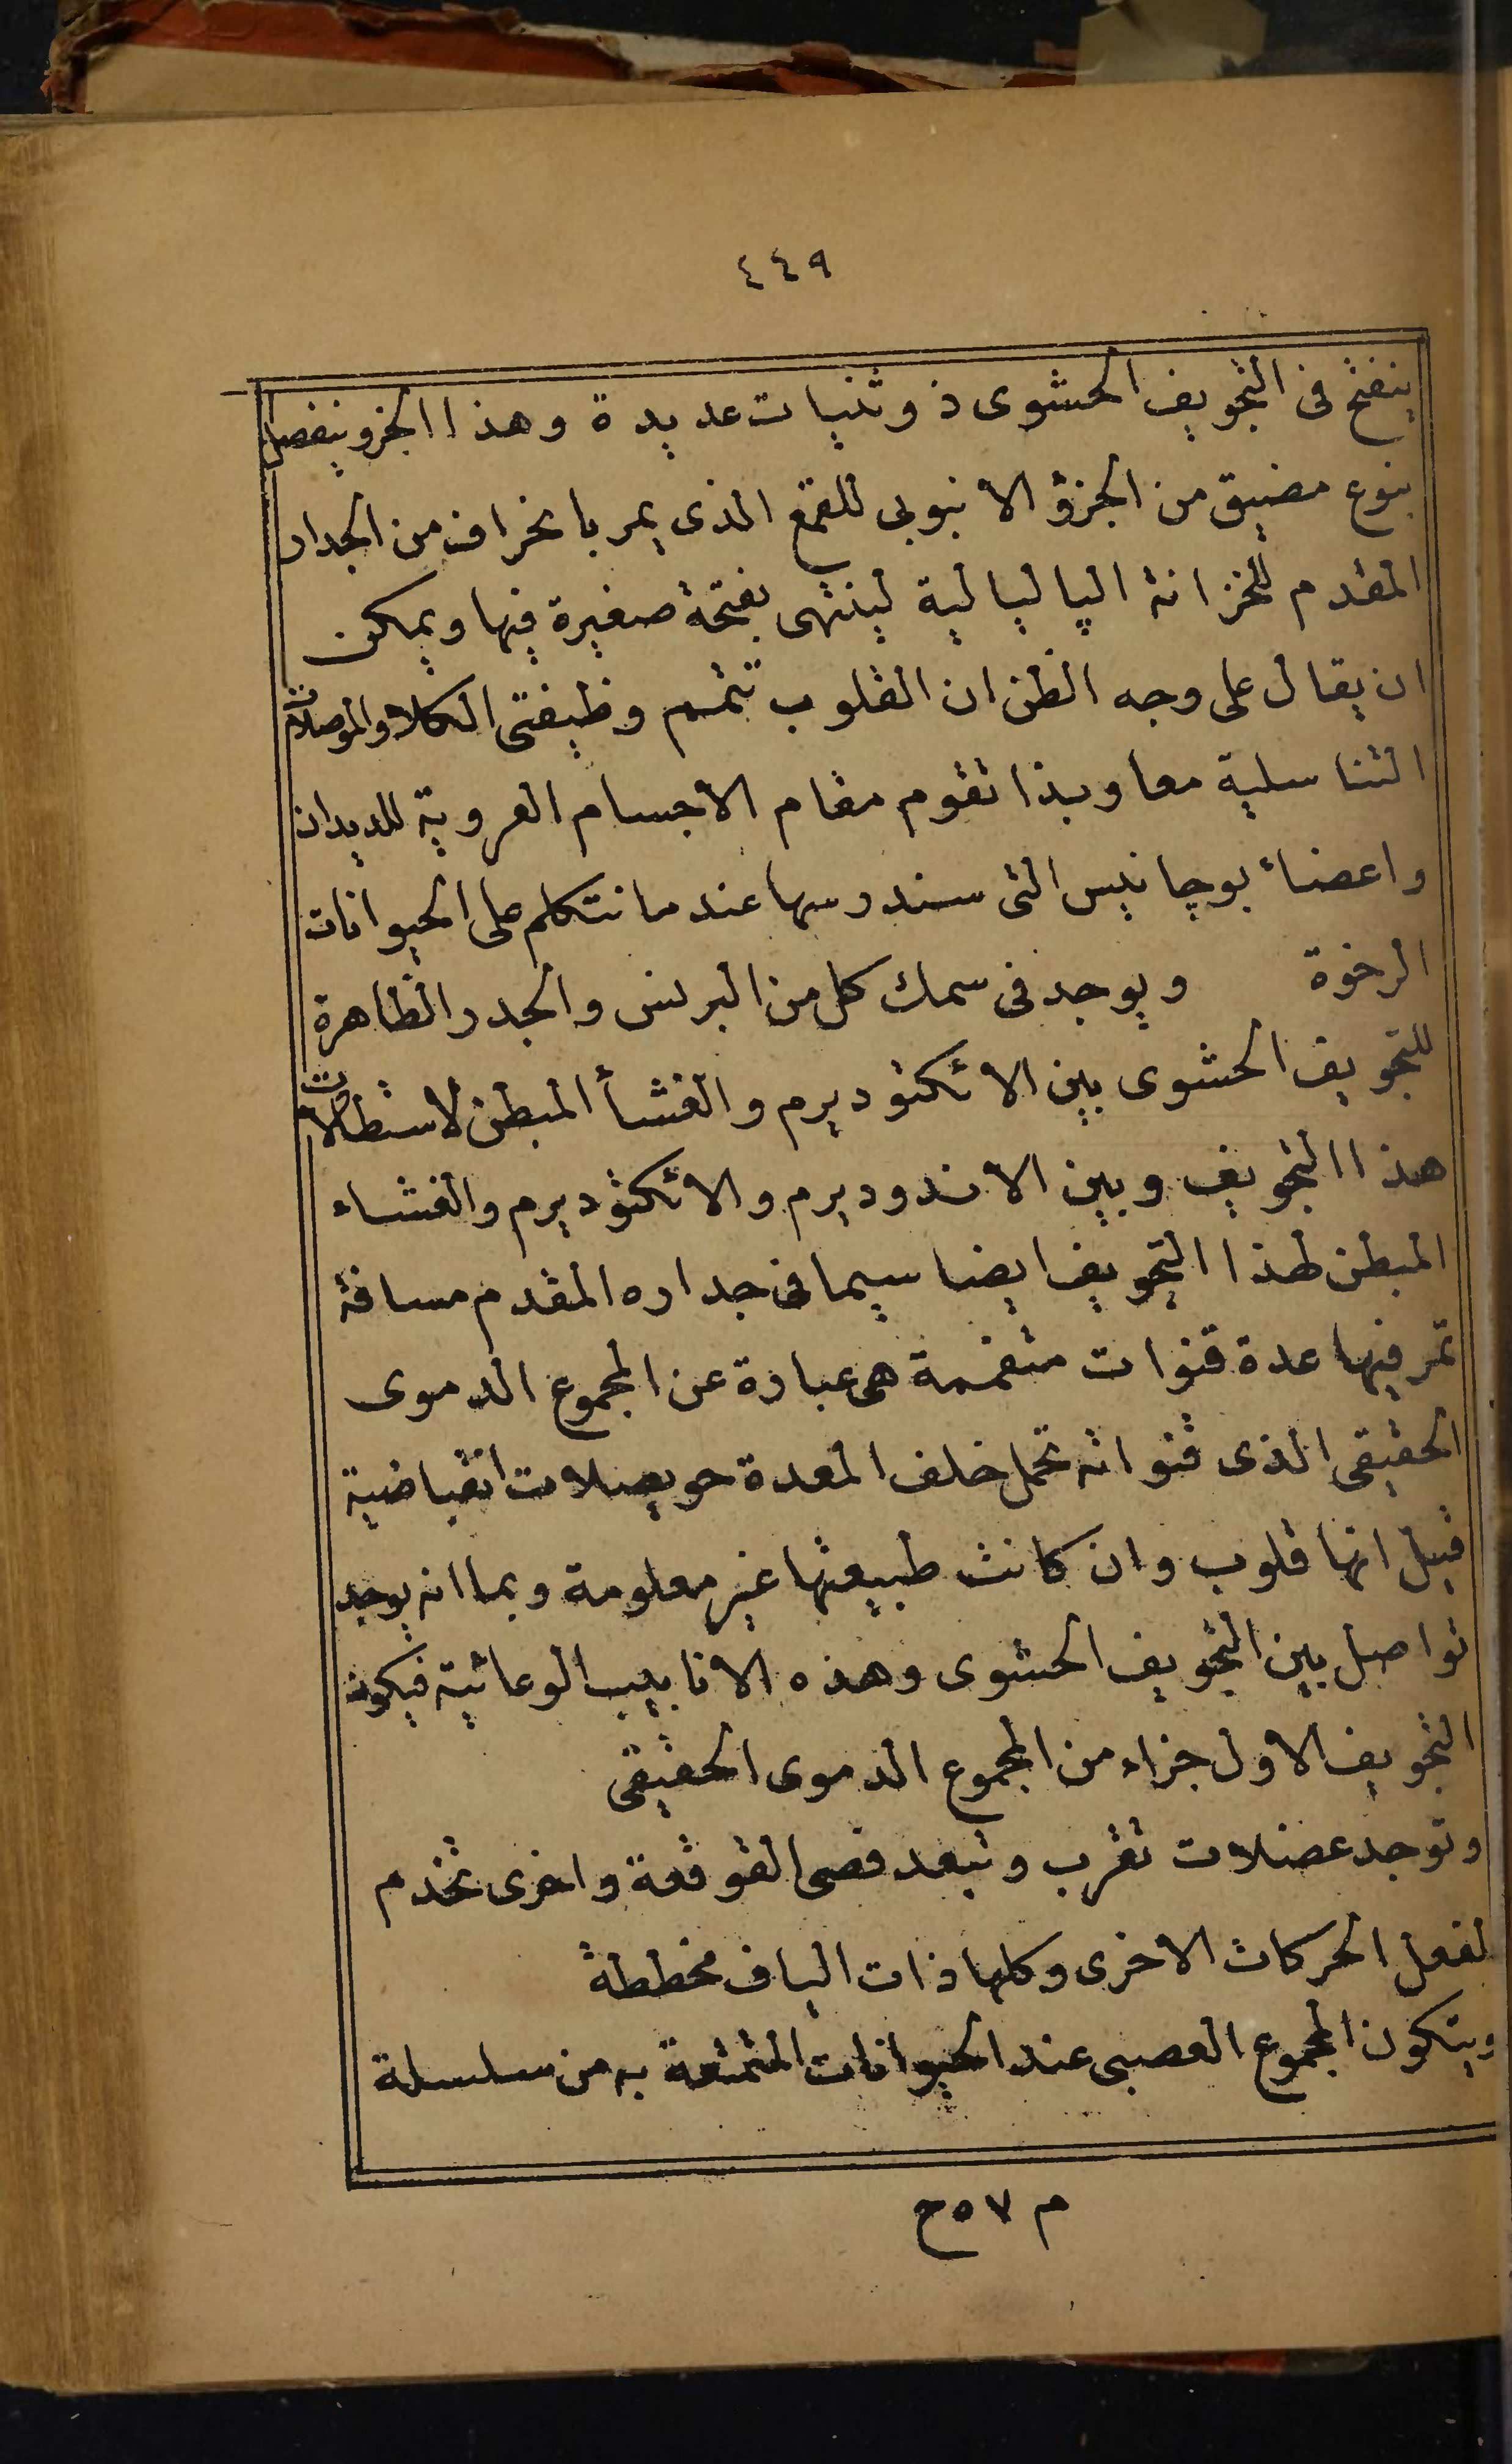 ٤٤٩
ينفتح فى التجويف الحشوى ذو ثنيات عديدة وهذا الجزو ينفصل
بنوع مضيق من الجزؤ الانبوبى للقمع الذى يمر بانحراف من الجدار
المقدم للخزانة الپاليالية لينتهى بفتحة صغيرة فيها ويمكن
ان يقال على وجه الظن ان القلوب تتمم وظيفتى الكلا والموصلات
التناسلية معا وبذا تقوم مقام الاجسام العروية للديدان
واعضاء بوچانيس التى سندرسها عندما نتكلم على الحيوانات
الرخوة ويوجد فى سمك كل من البرنس والجدر الظاهرة
للتجويف الحشوى بين الائكتوديرم والغشأ المبطن لاستطالات
هذا التجويف وبين الاندوديرم والائكتوديرم والغشاء
المبطن لهذا التجويف ايضا سيما فى جداره المقدم مسافة
تمر فيها عدة قنوات متفممة هى عبارة عن المجموع الدموى
الحقيقى الذى قنواته تحمل خلف المعدة حويصلات انقباضية
قيل انها قلوب وان كانت طبيعتها غير معلومة وبما انه يوجد
تواصل بين التجويف الحشوى وهذه الانابيب الوعائية فيكون
التجويف الاول جزاء من المجموع الدموى الحقيقى
وتوجد عضلات تقرب وتبعد فصى القوقعة واخرى تخدم
لفعل الحركات الاخرى وكلها ذات الياف مخططة
ويتكون المجموع العصبى عند الحيوانات المتمتعة به من سلسلة
م ٥٧ ح